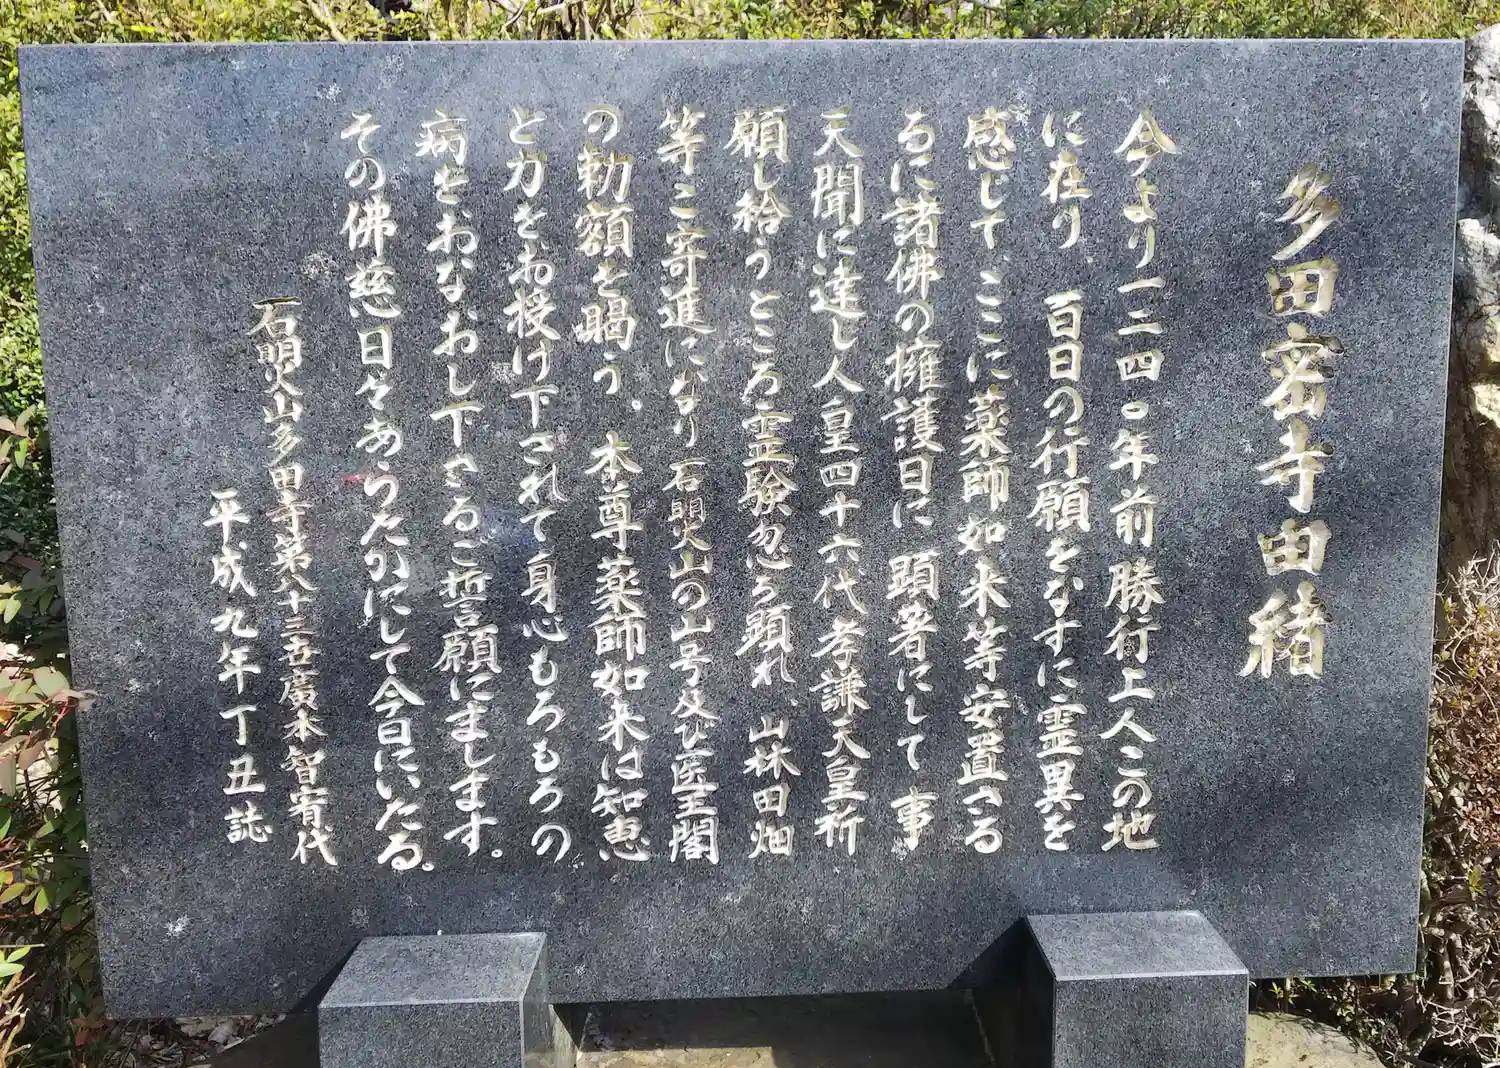 多田密寺由緒
今より一二四〇年前勝行上人この地
に在り 百日の行願をなすに霊異を
感じて、ここに薬師如来等安置さる
るに諸佛の擁護日に顕著にして 事
天聞に達し人皇四十六代孝謙天皇祈
願し給うところ霊験忽ち顕れ、山林田畑
等ご寄進になり石明火山の山号及び医王閣
の勅額を賜う。本尊薬師如来は知恵
と力をお授け下されて身心もろもろの
病をおなおし下さるご誓願にまします。
その佛慈日々あらたかにして今日にいたる。
石明火山多田寺第八十三世廣本智宥代
平成九年丁丑誌